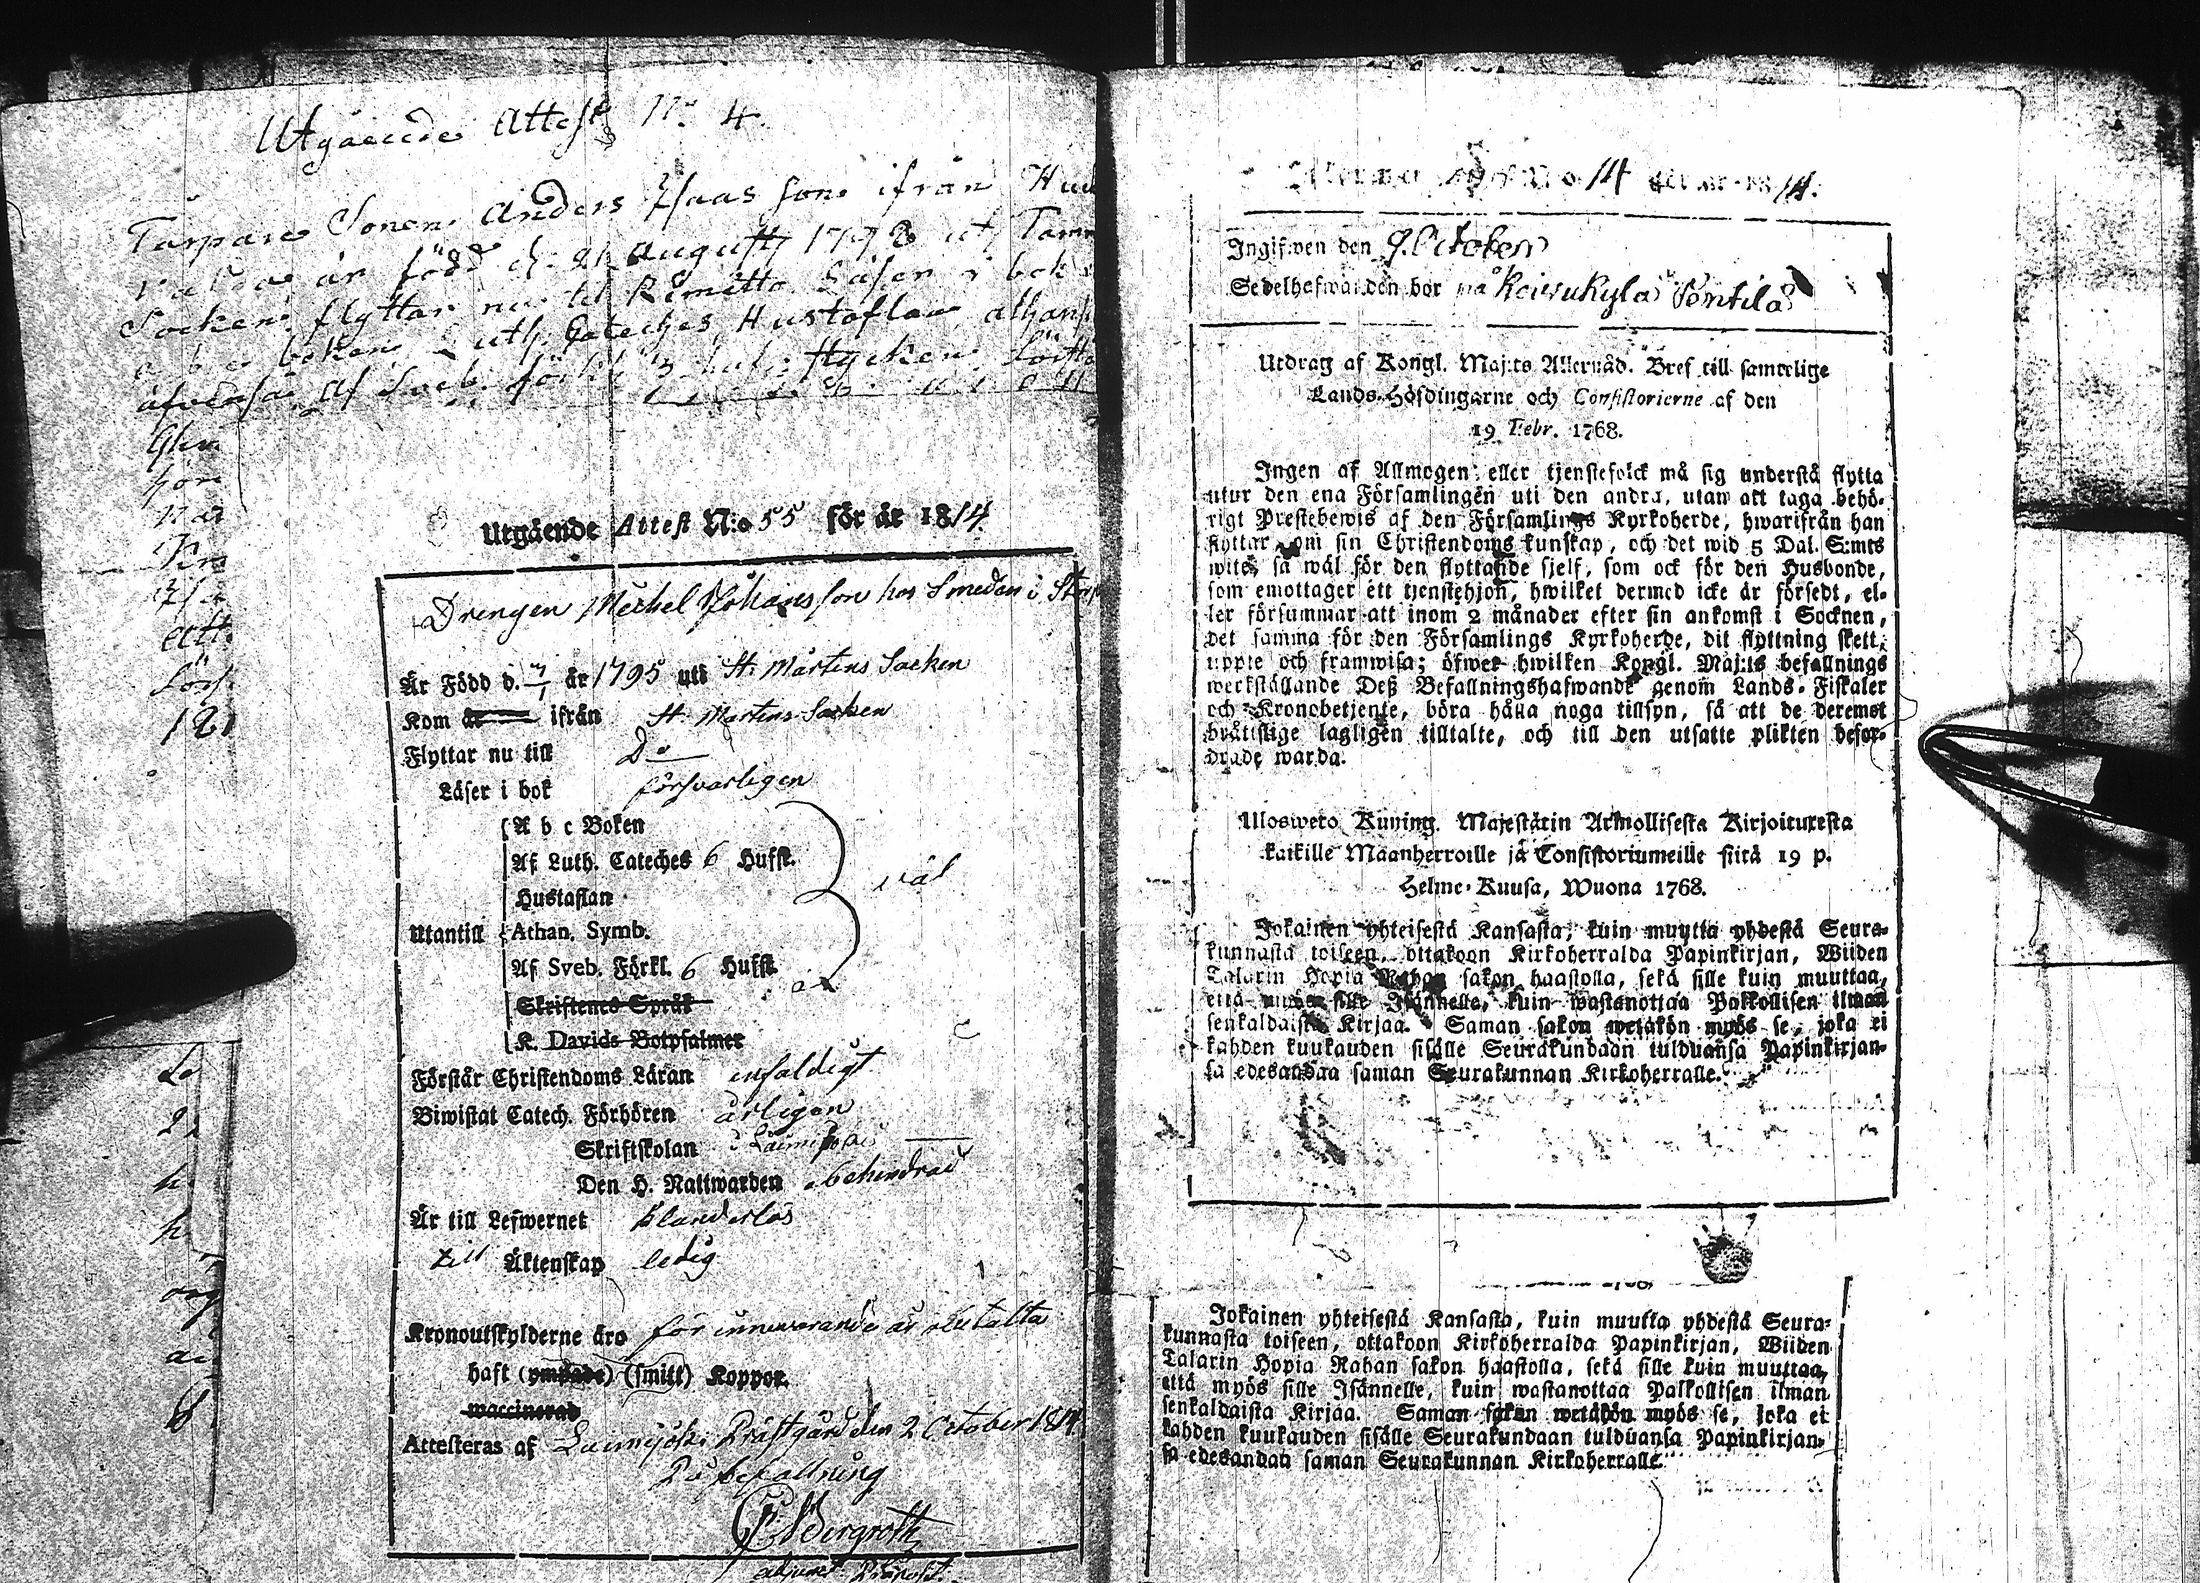 Utgående Attest No 4
Torpare Sonen Anders Isaas son ifrån
är född d. 21 August 1792 uti
Socken flyttar nu til Rimitto Läser i bok
a b c boken Luth. Cateches Hustaflan athan
Af Sveb. förkl. stycken
Utgående Attest N:o 55 för år 1814
Drengen Michel Johansson hos Smeden i
Är Född d. 7/1 år 1795 uti St. Mårtens Socken
Kom år ifrån St. Mårtens Socken
Flyttar nu till Do
Läser i bok försvarligen
A b c Boken
Af Luth. Cateches 6 Hufst.
Hustaflan
väl
Utantill Athan. Symb.
Af Sveb. Förkl. 6 Hufst.
Skriftenes Språk
K. Davids Botpsalmer
Förstår Christendoms Läran enfaldigt
Biwistat Catech. Förhören årligen
Skriftskolan i
Den H. Nattwarden obehindrad
Är till Lefwernet klanderlös
till Äktenskap ledig
Kronoutskylderne äro för innevarande år betalta
haft (ympade) (smitt) Koppor.
waccinerad
Attesteras af Prästgård den 2 October 1814
På befallning
Bergroth
adjunct
No 14 för år 1814.
Ingifwen den 9 October
Sedelhafwanden bor på Koivukylä Pentilä
Utdrag af Kongl. Maj:ts Allernåd. Bref till samtelige
Lands-Höfdingarne och Consistorierne af den
19 Febr. 1768.
Ingen af Allmogen eller tjenstefolck må sig understå flytta
utur den ena Församlingen uti den andra, utan att taga behö-
rigt Prestebewis af den Församlings Kyrkoherde, hwarifrån han
flyttar, om sin Christendoms kunskap, och det wid 5 Dal. S:mts
wite, så wäl för den flyttande sjelf, som ock för den Husbonde,
som emottager ett tjenstehjon, hwilket dermed icke är försedt, el-
ler försummar att inom 2 månader efter sin ankomst i Socknen,
det samma för den Församlings Kyrkoherde, dit flyttning skett,
uppte och framwisa; öfwer hwilken Kongl. Maj:ts befallnings
werkställande Deß Befallningshafwande genom Lands-Fiskaler
och Kronobetjente, böra hålla noga tillsyn, så att de deremot
bråttslige lagligen tilltalte, och till den utsatte plikten befor-
drade warda.
Ulosweto Kuning. Majestätin Armollisesta Kirjoituxesta
kaikille Maanherroille ja Consistoriumeille siitä 19 p.
Helme-Kuusa, Wuona 1768.
Jokainen yhteisestä Kansasta, kuin muutta yhdestä Seura-
kunnasta toiseen, ottakoon Kirkoherralda Papinkirjan, Wiiden
Talarin Hopia Rahan sakon haastolla, sekä sille kuin muuttaa,
että myös sille Isännelle, kuin wastanottaa Palkollisen ilman
senkaldaista Kirjaa. Saman sakon wetäkön myös se, joka ei
kahden kuukauden sisälle Seurakundaan tulduansa Papinkirjan-
sa edesandaa saman Seurakunnan Kirkoherralle.
Jokainen yhteisestä Kansasta, kuin muutta yhdestä Seura-
kunnasta toiseen, ottakoon Kirkoherralda Papinkirjan, Wiiden
Talarin Hopia Rahan sakon haastolla, sekä sille kuin muuttaa,
että myös sille Isännelle, kuin wastanottaa Palkollisen ilman
senkaldaista Kirjaa. Saman sakon wetäkön myös se, joka ei
kahden kuukauden sisälle Seurakundaan tulduansa Papinkirjan-
sa edesandaa saman Seurakunnan Kirkoherralle.